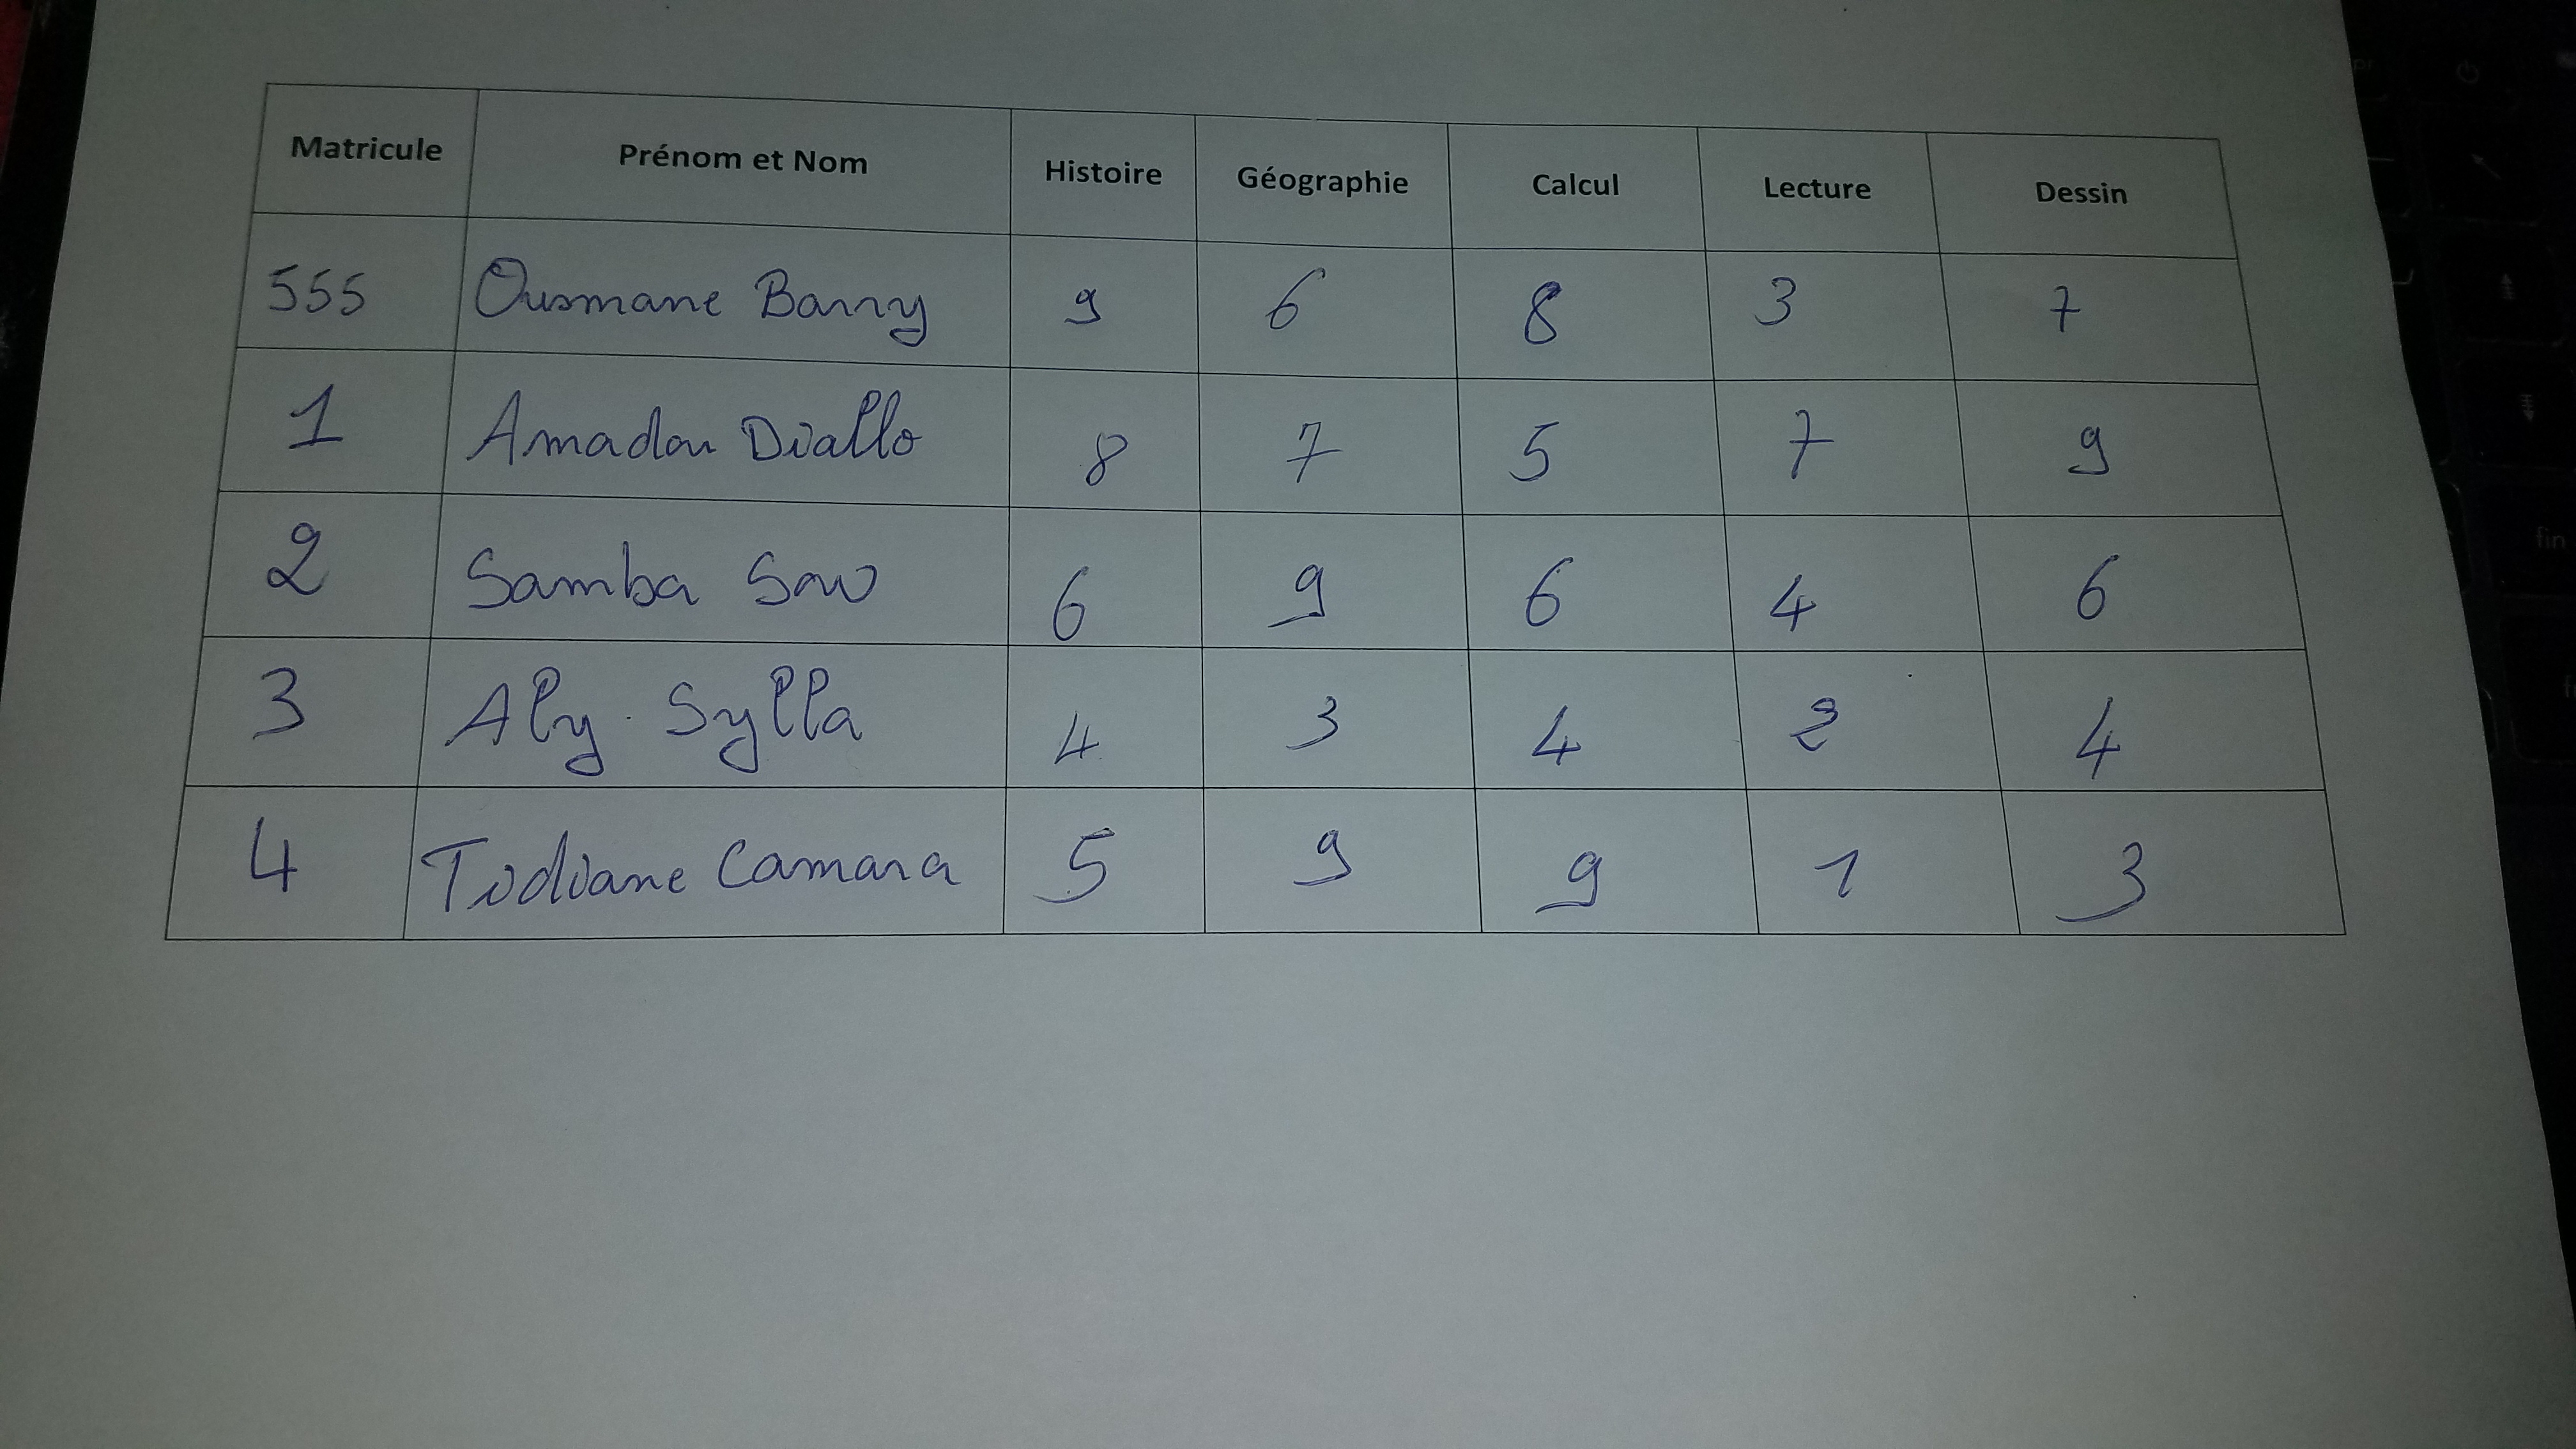 Matricule Prénom et Nom Histoire Géographie Calcul Lecture Dessin
555 Ousmane Barry 9 6 8 3 7
1 Amadou Diallo 8 7 5 7 9
2 Samba Sow 6 9 6 4 6
3 Aly Sylla 4 3 4 3 4
4 Tidiane Camara 5 9 9 1 3
fin